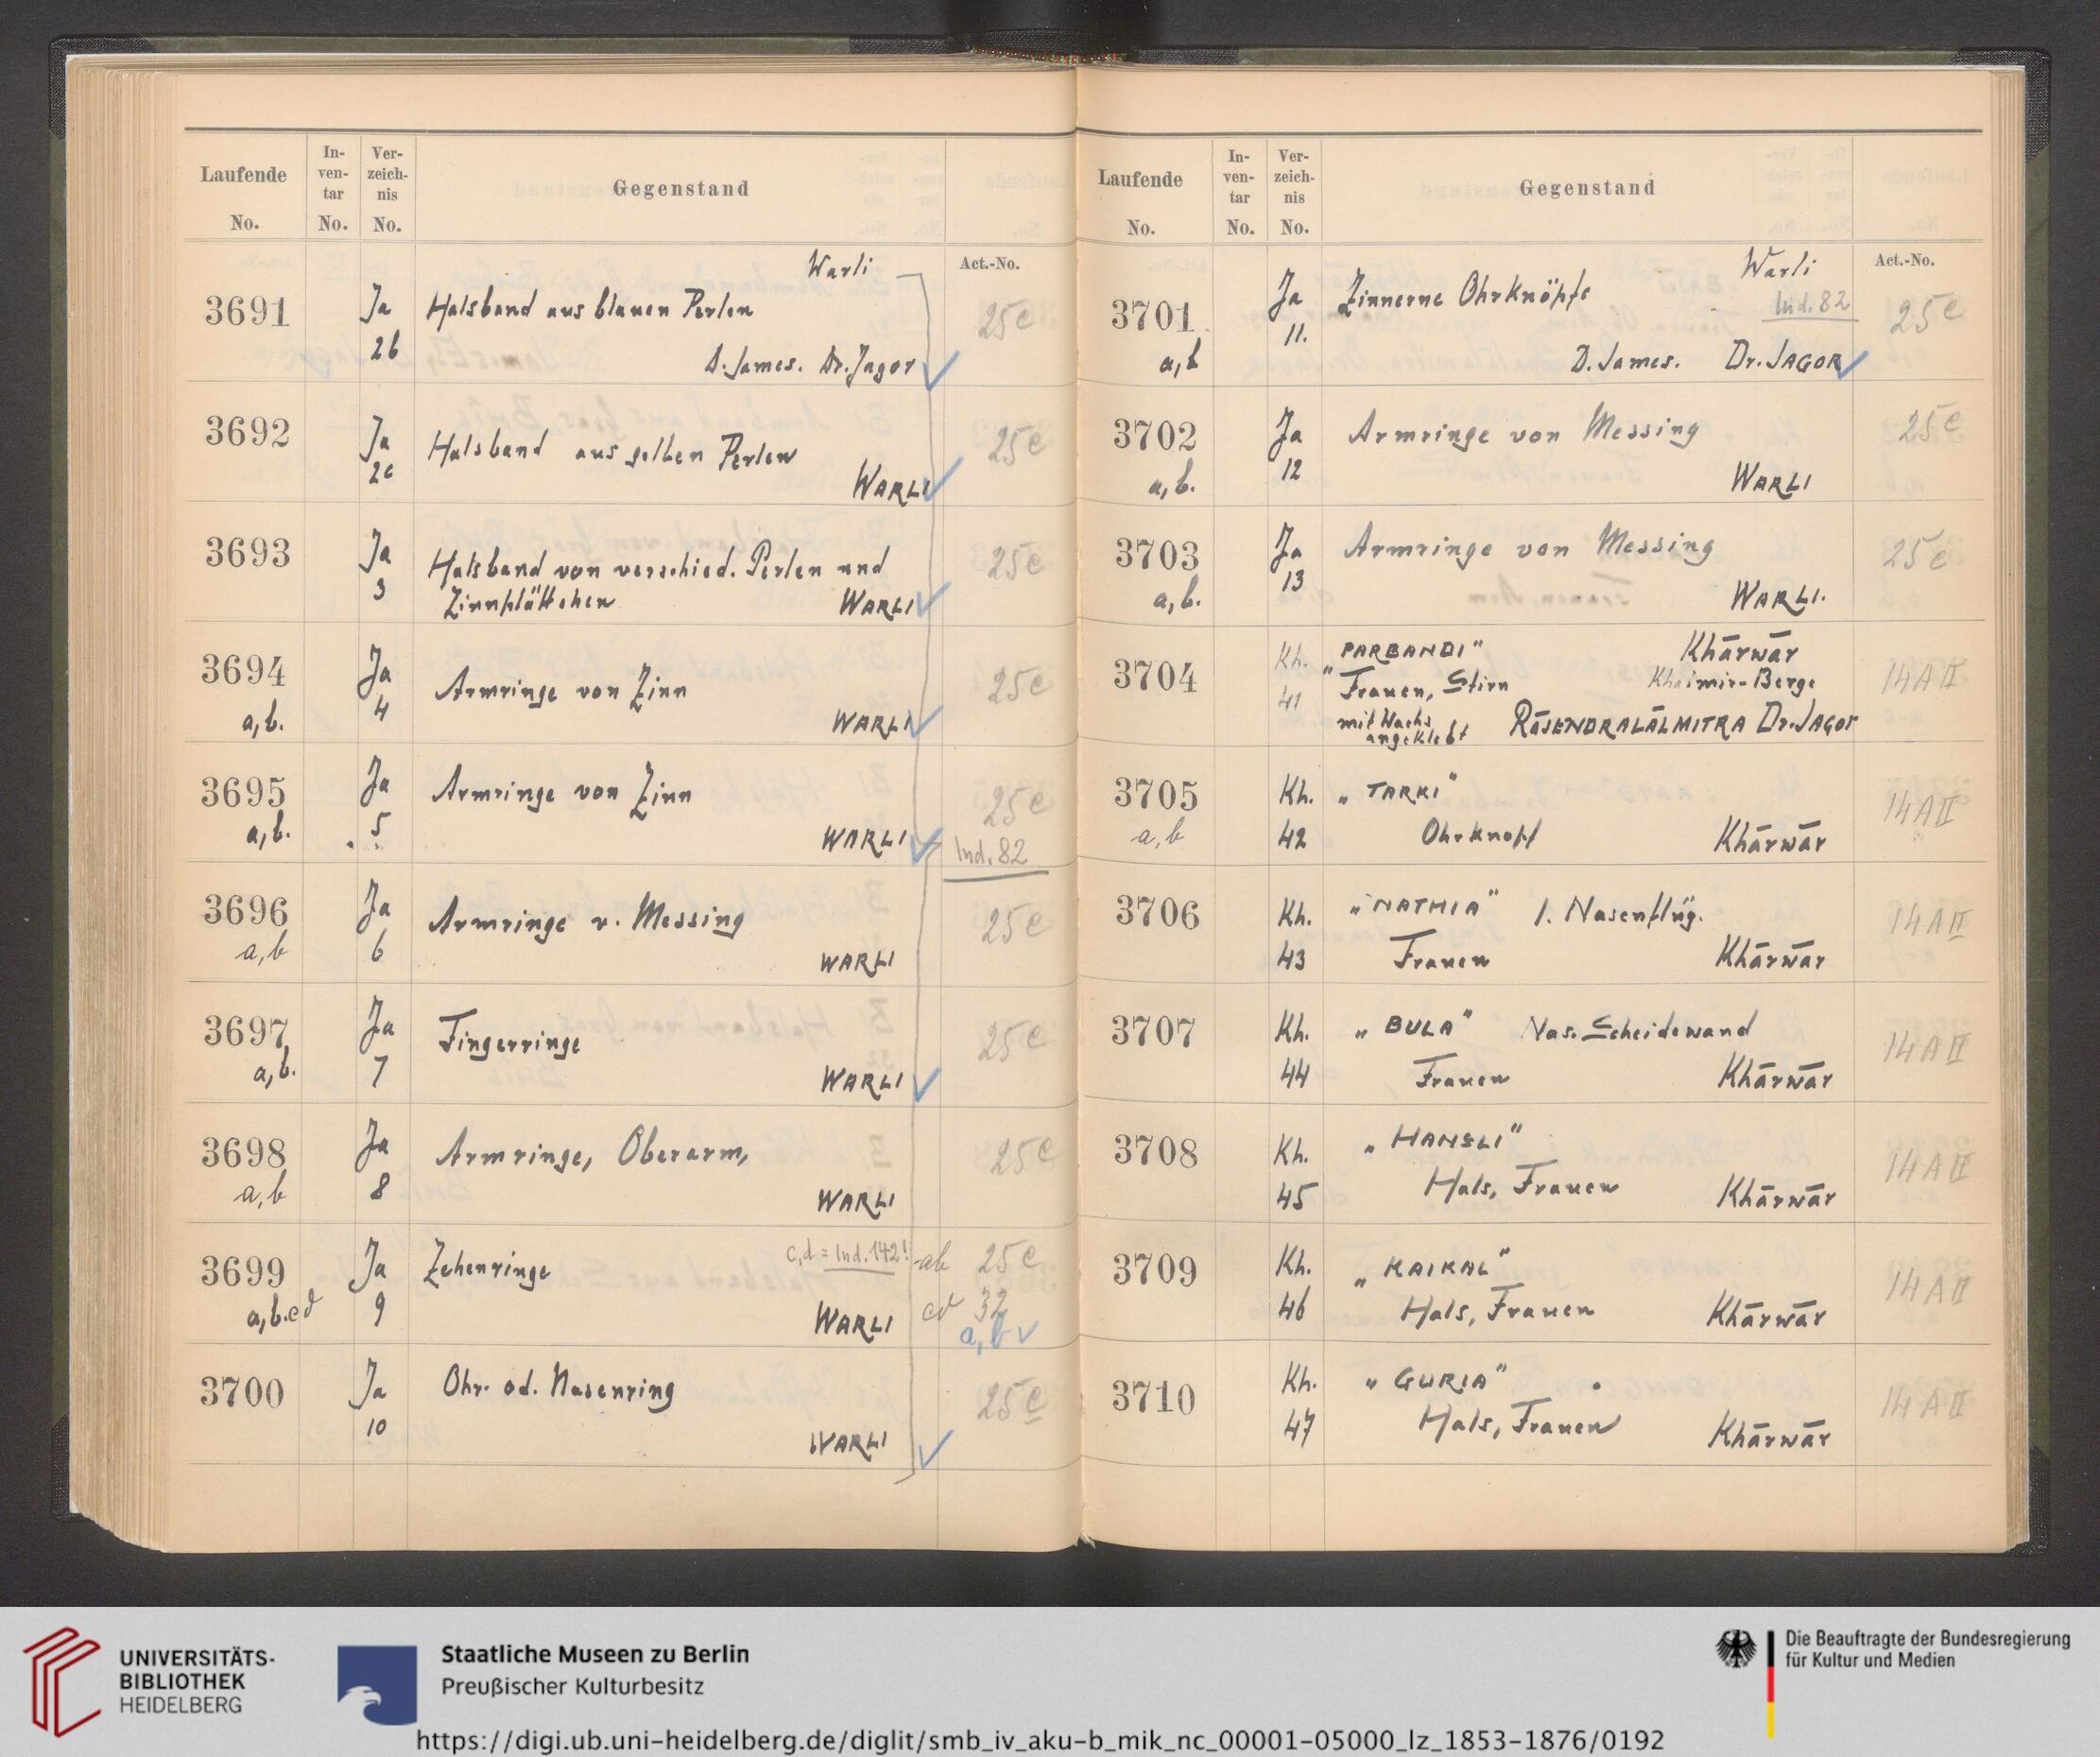 Laufende No.
In-ven-tar No.
Ver-zeich-nis No.
Gegenstand
Act.-No.
Warli
3691 Ja 2b Halsband aus blauen Perlen 25c
D. James. Dr. Jagor
3692 Ja 2c Halsband aus gelben Perlen 25c
WARLI
3693 Ja 3 Halsband von verschied. Perlen und 25c
Zinnplättchen WARLI
3694 Ja Armringe von Zinn 25c
a,b. 4 WARLI
3695 Ja Armringe von Zinn 25c
a,b. 5 WARLI Ind. 82
3696 Ja Armringe v. Messing 25c
a,b 6 WARLI
3697 Ja Fingerringe 25c
a,b. 7 WARLI
3698 Ja Armringe, Oberarm, 25c
a,b 8 WARLI
3699 Ja Zehenringe c,d = Ind. 142! ab 25c
a,b.cd 9 WARLI cd 32
a,b
3700 Ja Ohr- od. Nasenring 25c
10 WARLI
Laufende No.
In-ven-tar No.
Ver-zeich-nis No.
Gegenstand
Act.-No.
Warli
3701 Ja Zinnerne Ohrknöpfe Ind. 82 25c
a,b 11. D. James. Dr. JAGOR
3702 Ja Armringe von Messing 25c
a,b. 12 WARLI
3703 Ja Armringe von Messing 25c
a,b. 13 WARLI.
3704 Kh. "PARBANDI" Khārwār 14 A II
41 Frauen, Stirn Khaimir-Berge
mit Wachs angeklebt RĀJENDRALĀLMITRA Dr. JAGOR
3705 Kh. "TARKI" 14 A II
a,b 42 Ohrknopf Khārwār
3706 Kh. "NATHIA" l. Nasenflüg. 14 A II
43 Frauen Khārwār
3707 Kh. "BULA" Nas. Scheidewand 14 A II
44 Frauen Khārwār
3708 Kh. "HANSLI" 14 A II
45 Hals, Frauen Khārwār
3709 Kh. "KAIKAL" 14 A II
46 Hals, Frauen Khārwār
3710 Kh. "GURIA" 14 A II
47 Hals, Frauen Khārwār
UNIVERSITÄTS-
BIBLIOTHEK
HEIDELBERG
Staatliche Museen zu Berlin
Preußischer Kulturbesitz
Die Beauftragte der Bundesregierung
für Kultur und Medien
https://digi.ub.uni-heidelberg.de/diglit/smb_iv_aku-b_mik_nc_00001-05000_lz_1853-1876/0192